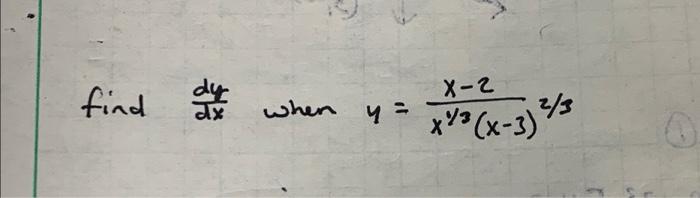 find dy/dx when y = x-2 / x^1/3 (x-3)^2/3